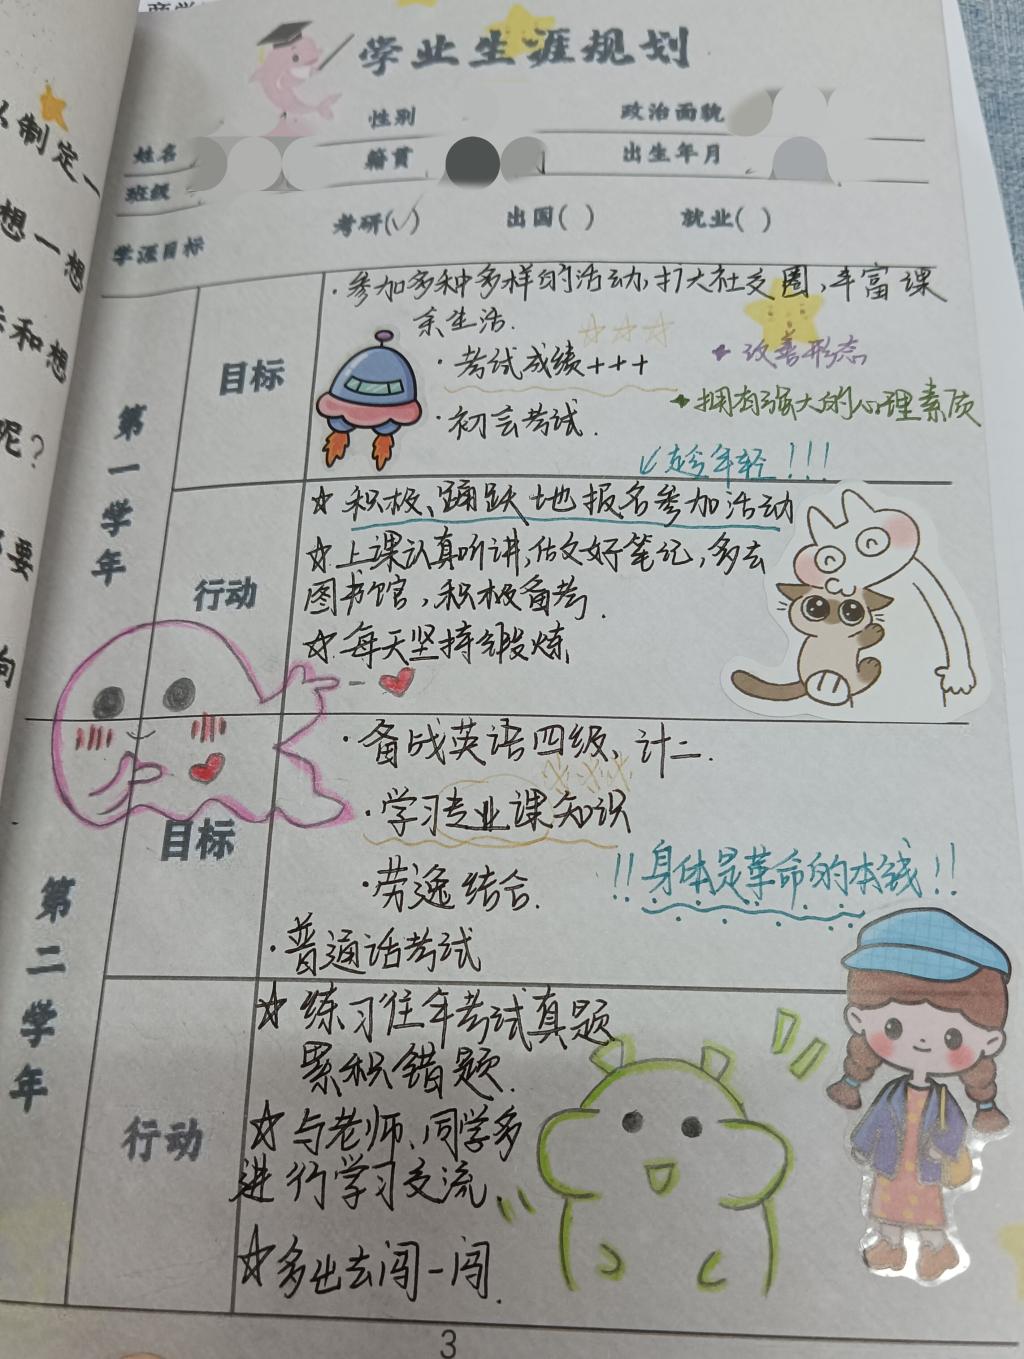 学业生涯规划
性别 政治面貌
姓名 籍贯 出生年月
班级
学涯目标 考研(√) 出国( ) 就业( )
第一学年
目标
·参加多种多样的活动,扩大社交圈,丰富课
余生活.
·考试成绩+++
✦改善形态
✦拥有强大的心理素质
·初会考试.
↙趁年轻!!!
行动
☆积极、踊跃地报名参加活动
☆上课认真听讲,做好笔记,多去
图书馆,积极备考.
☆每天坚持锻炼
第二学年
目标
·备战英语四级、计二.
·学习专业课知识
·劳逸结合.
!!身体是革命的本钱!!
·普通话考试
行动
☆练习往年考试真题
累积错题.
☆与老师、同学多
进行学习交流.
☆多出去闯一闯.
3
制定一
想一想
和想
呢?
要
向